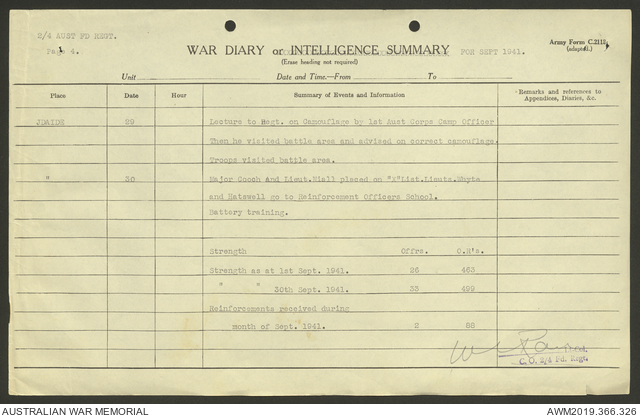 2/4 AUST FD REGT.
Page 4.
WAR DIARY or INTELLIGENCE SUMMARY FOR SEPT 1941.
(Erase heading not required)
Army Form C.2118,
(adapted.)
Unit
Date and Time.—From To
Place Date Hour Summary of Events and Information Remarks and references to Appendices, Diaries, &c.
JDAIDE 29 Lecture to Regt. on Camouflage by 1st Aust Corps Camp Officer
Then he visited battle area and advised on correct camouflage.
Troops visited battle area.
" 30 Major Gooch And Lieut.Niall placed on "X"List.Lieuts.Whyte
and Hatswell go to Reinforcement Officers School.
Battery training.
Strength Offrs. O.R's.
Strength as at 1st Sept. 1941. 26 463
" " 30th Sept. 1941. 33 499
Reinforcements received during
month of Sept. 1941. 2 88
C.O. 2/4 Fd. Regt.
AUSTRALIAN WAR MEMORIAL AWM2019.366.326